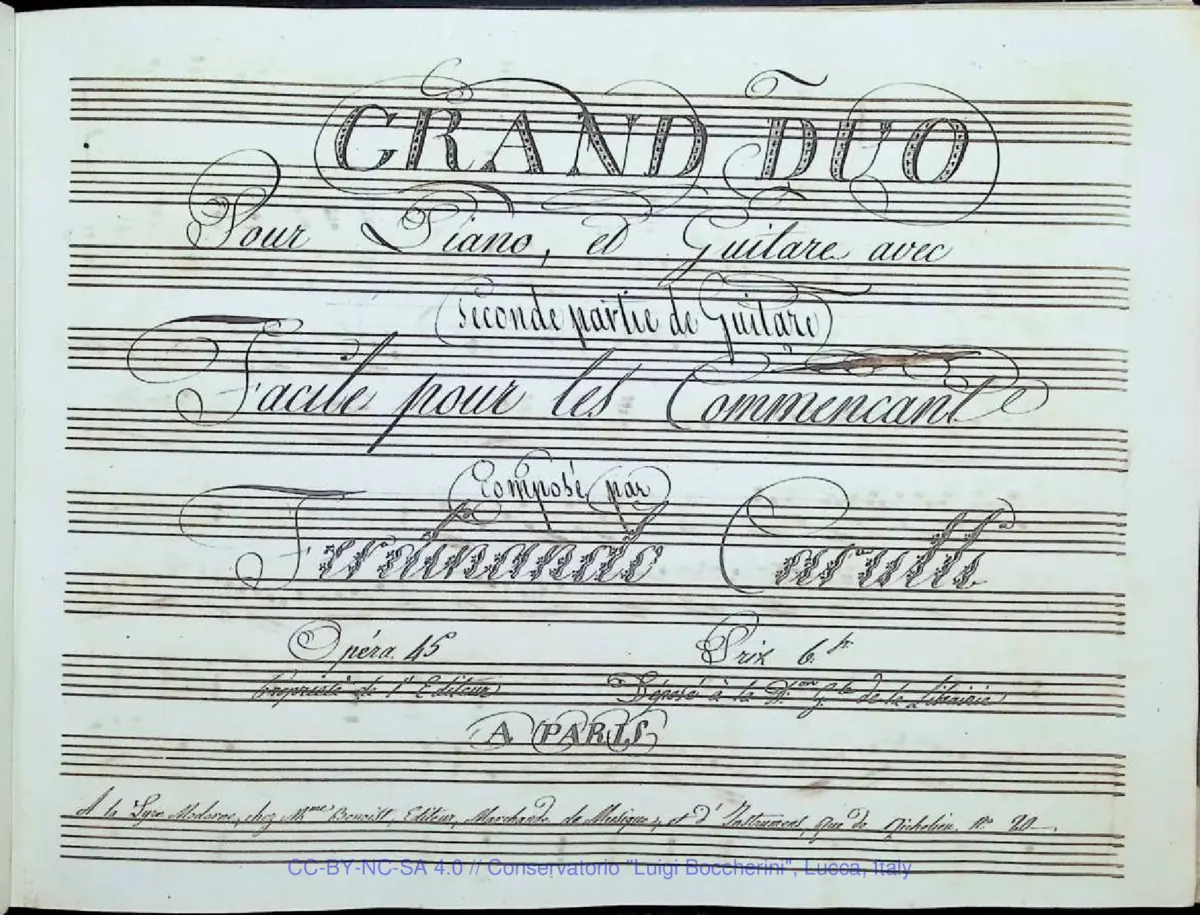 GRAND DUO
Pour Piano, et Guitare avec
seconde partie de Guitare
Facile pour les Commencant
Composé par
Ferdinando Carulli
Opéra. 45 Prix 6.fr
Propriété de l'Editeur Déposé à la D.on G.le de la Librairie
A PARIS
A la Lyre Moderne, chez Mme Benoist, Editeur, Marchande de Musique, et d'Instrumens, Rue de Richelieu. No 20
CC-BY-NC-SA 4.0 // Conservatorio "Luigi Boccherini", Lucca, Italy